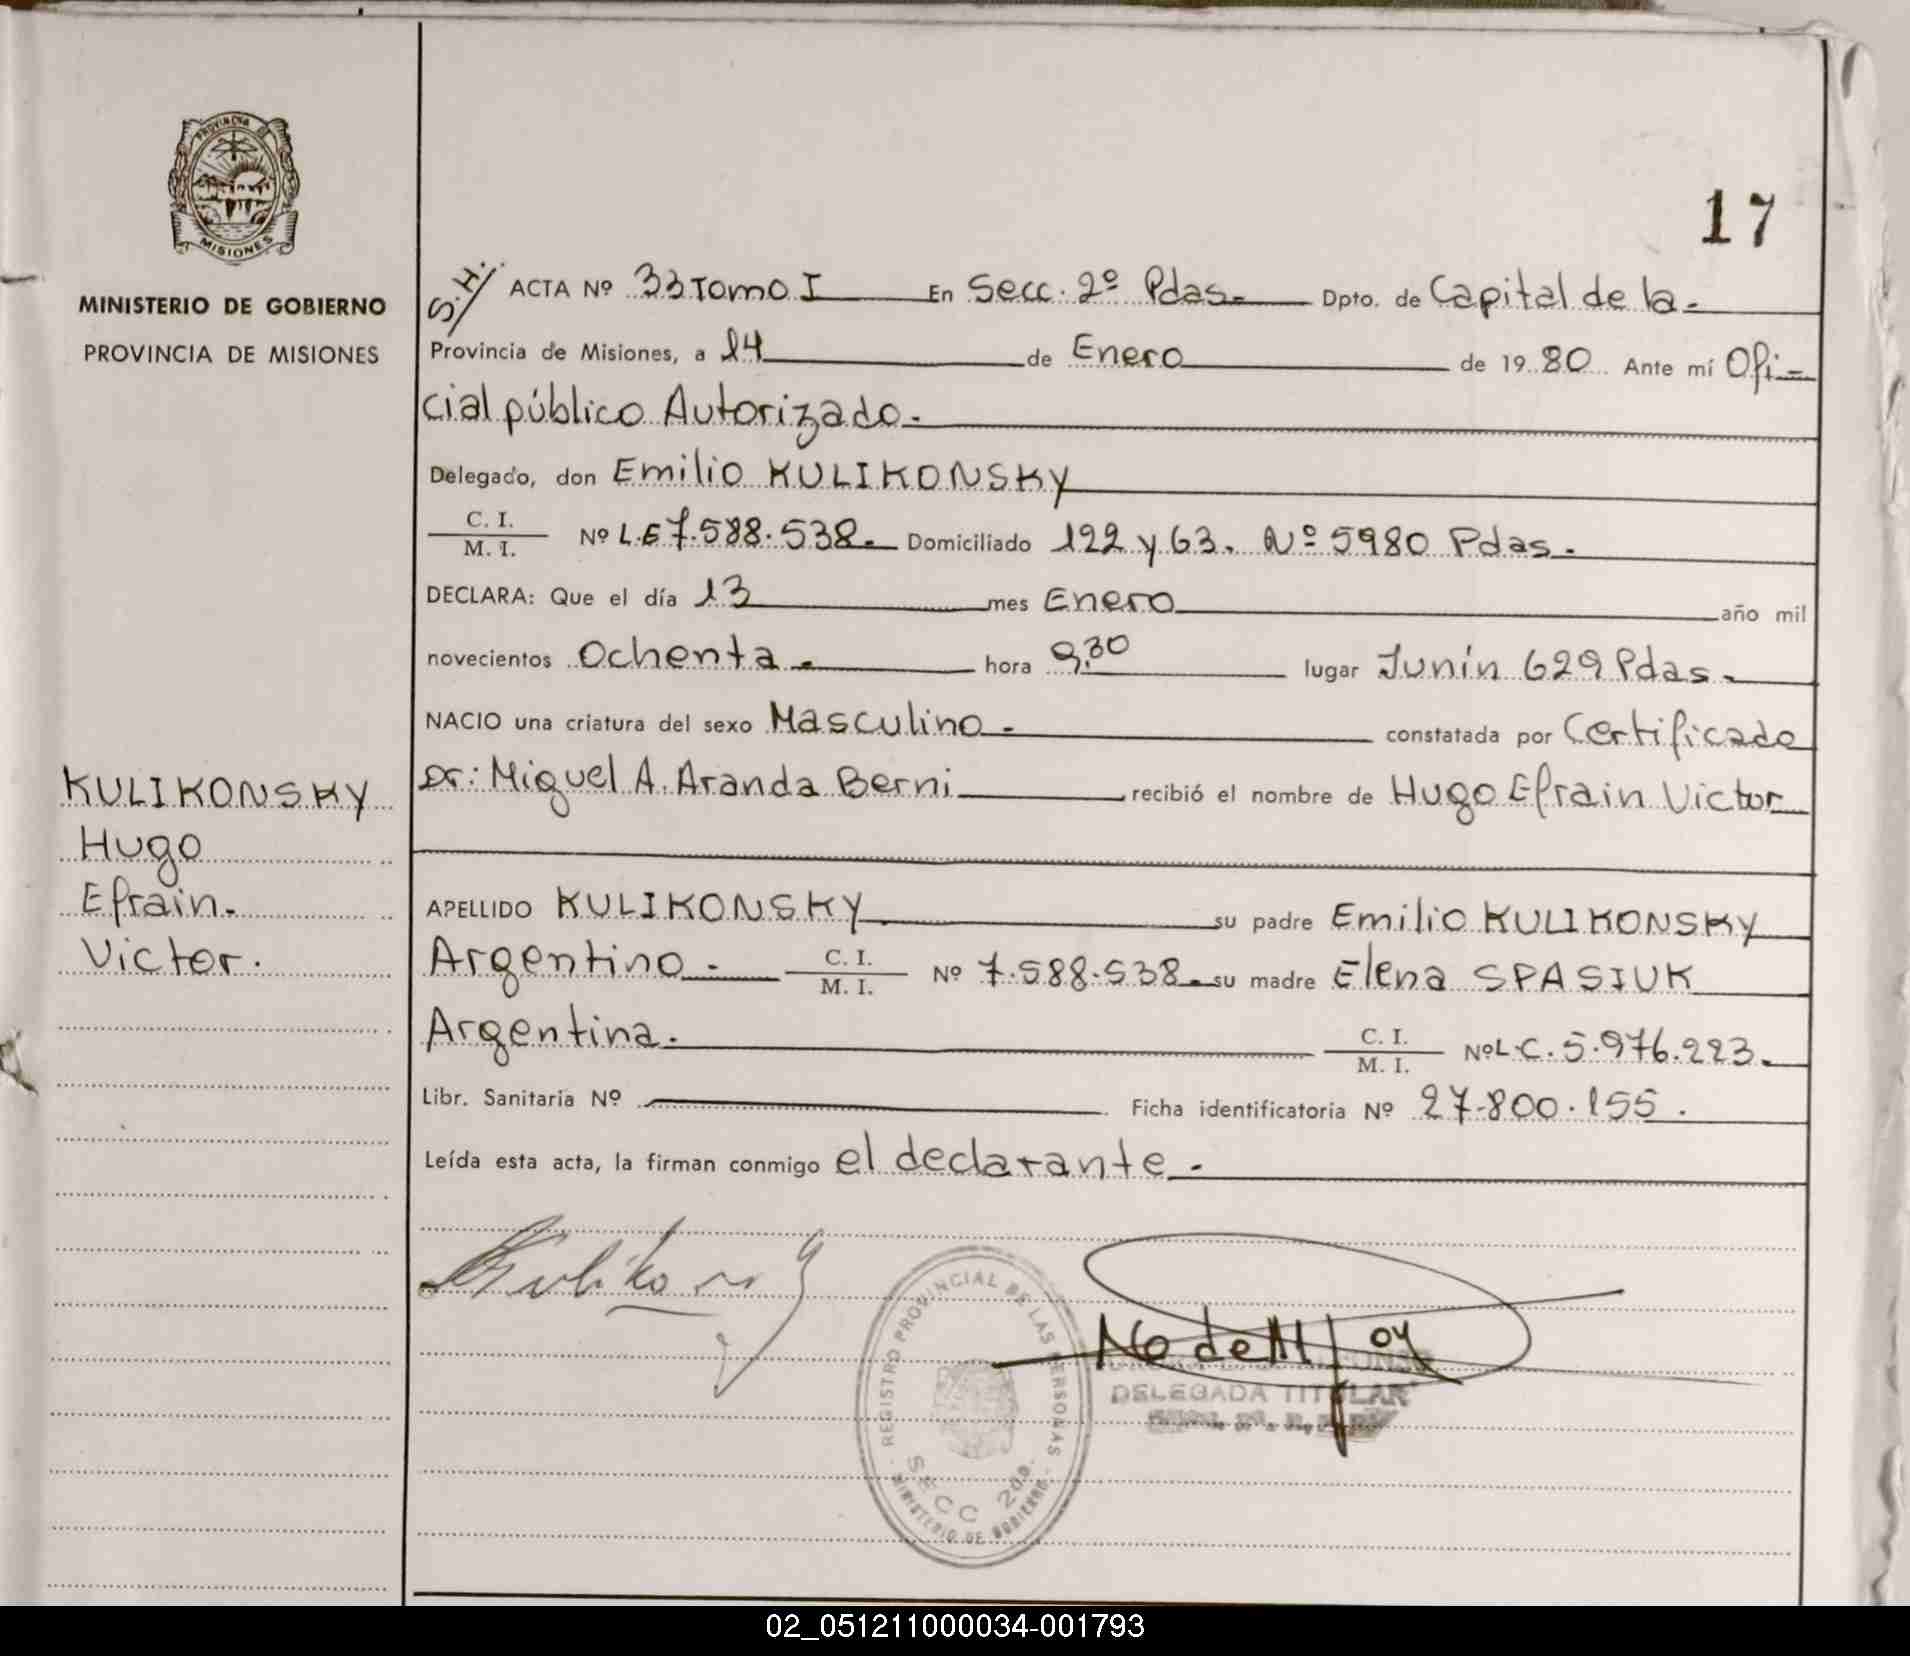 PROVINCIA DE
MISIONES
MINISTERIO DE GOBIERNO
PROVINCIA DE MISIONES
KULIKONSKY
Hugo
Efrain.
Victor.
17
S.H. ACTA Nº 33 Tomo I En Secc. 2º Pdas. Dpto. de Capital de la.
Provincia de Misiones, a 14 de Enero de 1980 Ante mí Ofi-
cial público Autorizado.
Delegado, don Emilio KULIKONSKY
C. I.
M. I. Nº L.E 7.588.538. Domiciliado 122 y 63. Nº 5980 Pdas.
DECLARA: Que el día 13 mes Enero año mil
novecientos Ochenta. hora 9,30 lugar Junín 629 Pdas.
NACIO una criatura del sexo Masculino. constatada por Certificado
Dr: Miguel A. Aranda Berni recibió el nombre de Hugo Efrain Victor
APELLIDO KULIKONSKY su padre Emilio KULIKONSKY
Argentino. C. I.
M. I. Nº 7.588.538. su madre Elena SPASIUK
Argentina. C. I.
M. I. Nº L.C. 5.976.223.
Libr. Sanitaria Nº Ficha identificatoria Nº 27.800.155.
Leída esta acta, la firman conmigo el declarante.
REGISTRO PROVINCIAL DE LAS PERSONAS
SECC 2da.
MINISTERIO DE GOBIERNO
DELEGADA TITULAR
02_051211000034-001793